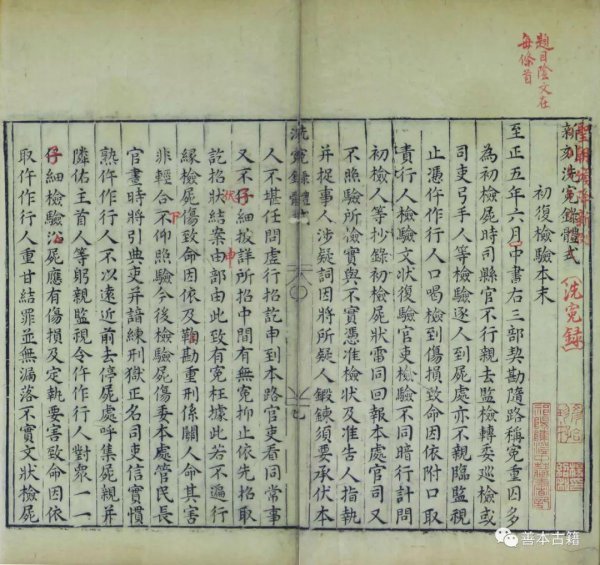 題目陰文在
每條首
新刻洗冤錄體式
洗冤録
初復檢驗本末
至正五年六月中書右三部契勘隨路稱冤重囚多
為初檢屍時司縣官不行親去監檢轉委巡檢或
司吏弓手人等檢驗逐人到屍處亦不親臨監視
止憑仵作行人口喝檢到傷損致命因依附口取
責行人檢驗文狀復驗官吏檢驗不同暗行計問
初檢人等抄錄初檢屍狀雷同回報本處官司又
不照驗所檢實與不實憑准檢狀及准告人指執
并捉事人涉疑詞因將所疑人鍛鍊須要承伏本
洗冤錄體式
人不堪任問虛行招訖申到本路官吏看同常事
又不仔細披詳所招中間有無冤抑止依先招取
訖招狀結案由部由此致有冤枉據此若不遍行
緣檢屍傷致命因依及勘重刑係關人命其害
非輕合下仰照驗今後檢驗屍傷委本處管民長
官畫時將引典吏并諳練刑獄正名司吏信實慣
熟仵作行人不以遠近前去停屍處呼集屍親并
隣佑主首人等躬親監視令仵作行人對衆一一
仔細檢驗沿屍應有傷損及定執要害致命因依
取仵作行人重甘結罪並無漏落不實文狀檢屍
善本古籍